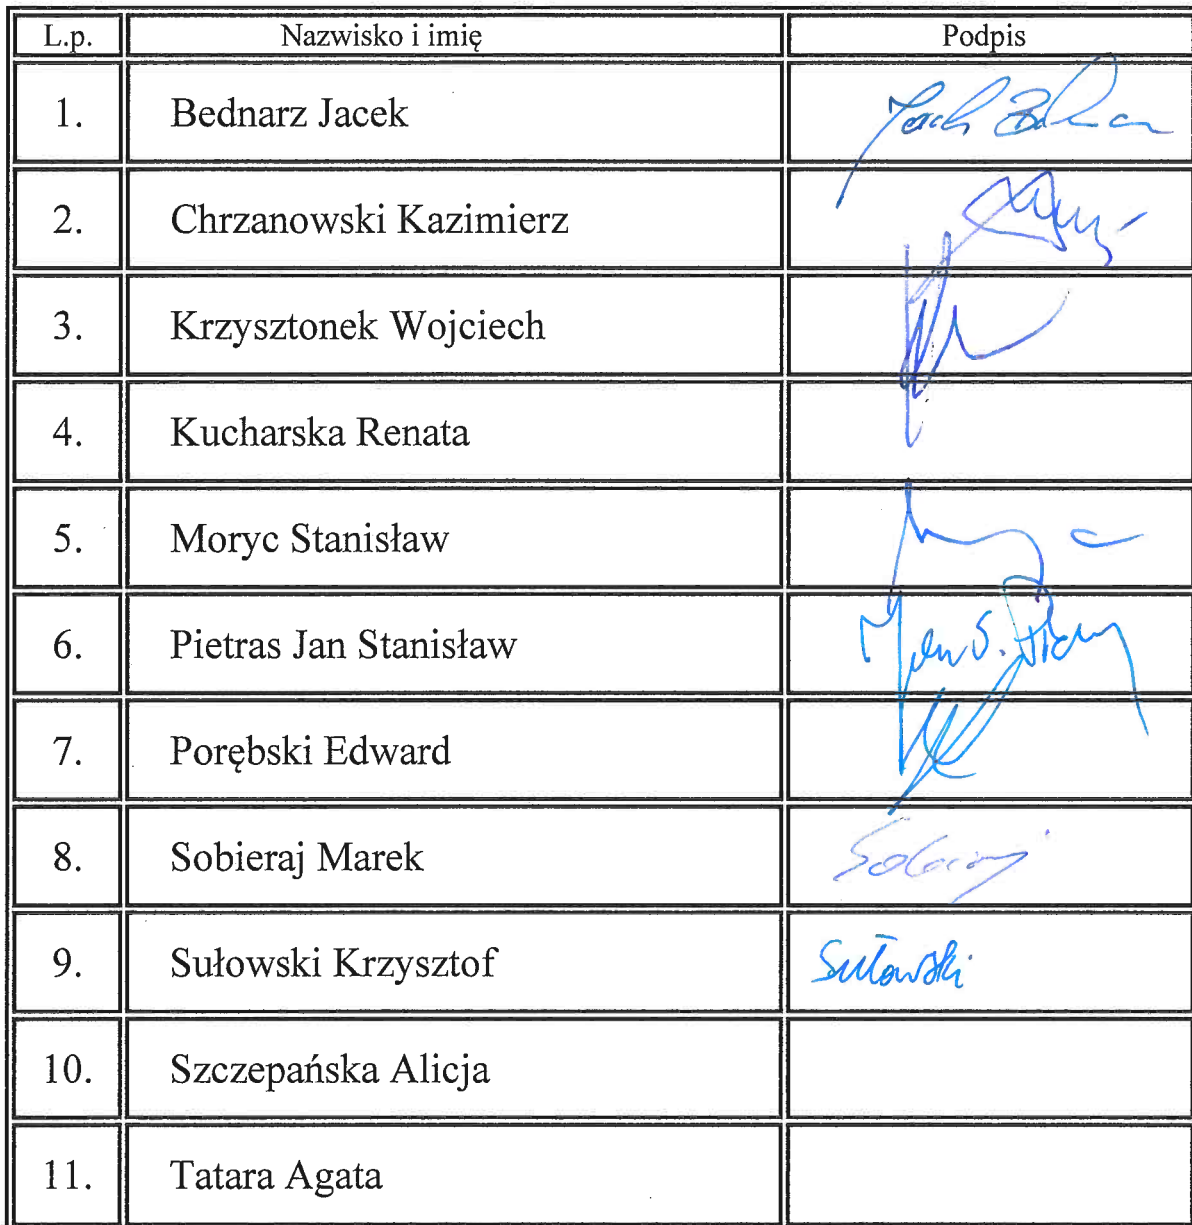 L.p. Nazwisko i imię Podpis
1. Bednarz Jacek
2. Chrzanowski Kazimierz
3. Krzysztonek Wojciech
4. Kucharska Renata
5. Moryc Stanisław
6. Pietras Jan Stanisław
7. Porębski Edward
8. Sobieraj Marek
9. Sułowski Krzysztof Sułowski
10. Szczepańska Alicja
11. Tatara Agata